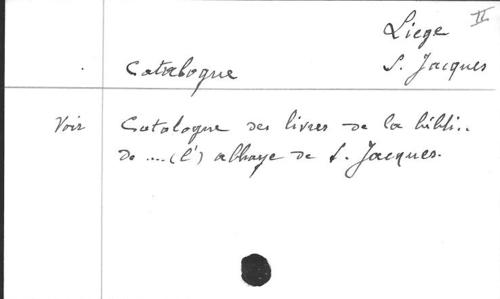 II
Liege
Catalogue S. Jacques
Voir Catalogue des livres de la bibli..
de ....(l') abbaye de S. Jacques.